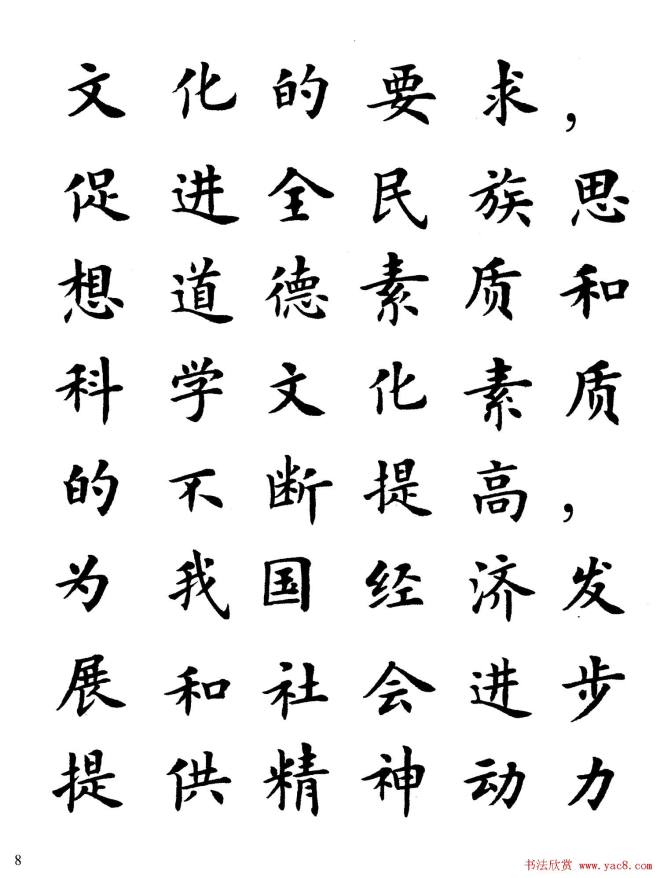 文化的要求，
促进全民族思
想道德素质和
科学文化素质
的不断提高，
为我国经济发
展和社会进步
提供精神动力
8
书法欣赏 www.yac8.com